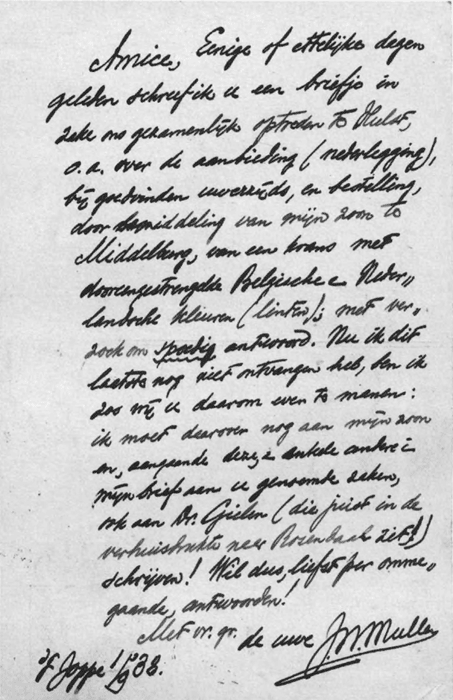 Amice, Eenige of ettelijke dagen
geleden schreef ik u een briefje in
zake ons gezamenlijk optreden te Hulst,
o.a. over de aanbieding (nederlegging),
bij goedvinden uwerzijds, en bestelling,
door bemiddeling van mijn zoon te
Middelburg, van een krans met
dooreengestrengelde Belgische e Neder„
landsche kleuren (linten); met ver„
zoek om spoedig antwoord. Nu ik dit
laatste nog niet ontvangen heb, ben ik
zoo vrij u daarom even te manen:
ik moet daarover nog aan mijn zoon
en, aangaande deze, e enkele andere i
mijn brief aan u genoemde zaken,
ook aan Dr. Gielen (die juist in de
verhuisdrukte naar Rozendaal zit!)
schrijven! Wil dus, liefst per omme„
gaande, antwoorden!
Met vr. gr. de uwe J.W. Muller
't Joppe! 1/9 38.